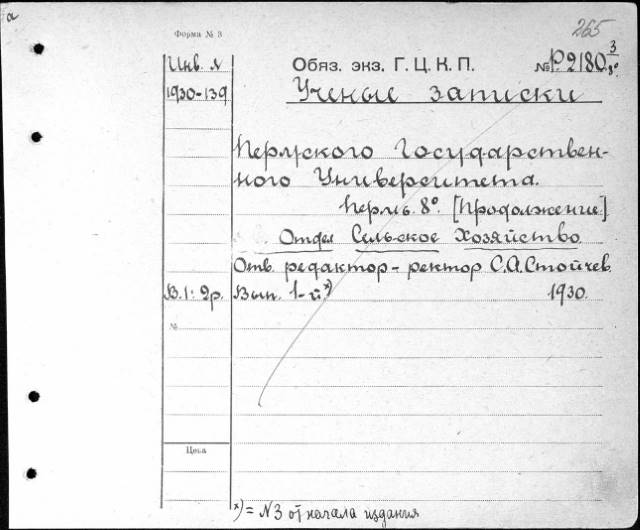 а
Форма № 3
265
Инв. №
Обяз. экз. Г. Ц. К. П.
№ Р. 2180 3/8º.
1930-139
Ученые записки
Пермского Государствен-
ного Университета.
Пермь. 8º. [Продолжение.]
Отдел Сельское Хозяйство
Отв. редактор - ректор С.А. Стойчев.
В. 1: 2р.
Вып. 1-й ˣ)
1930.
№
Цена
ˣ) = N 3 от начала издания